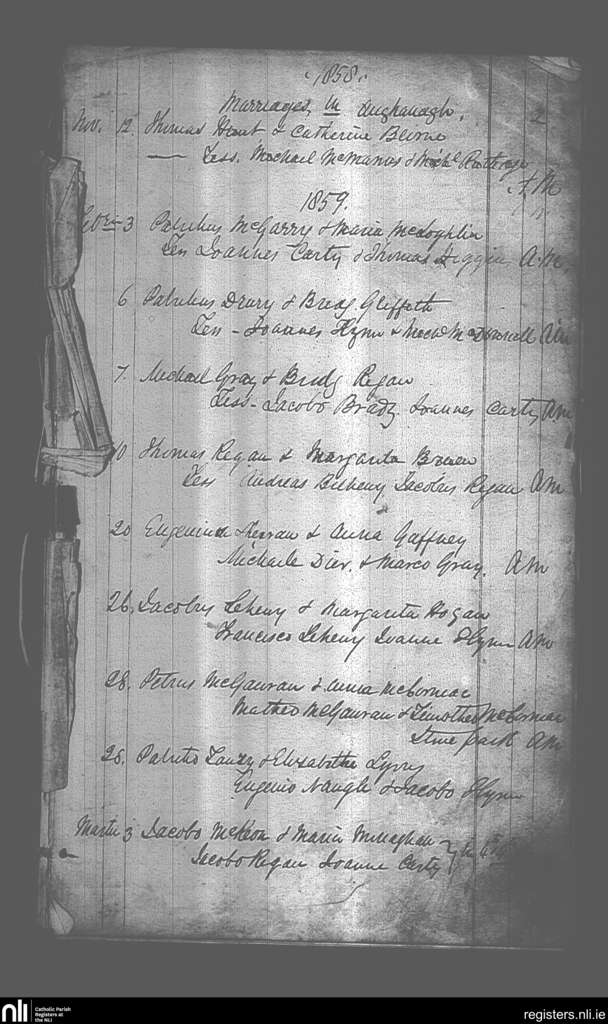 1858.
Marriages, in Aughanagh.
2
Nov. 12 Thomas Hunt & Catherine Beirne
— Tess. Michael McManus & Michl
A.M
1859.
Febry 3 Patritius McGarry & Maria McLoghlin
Tess Joannes Carty & Thomas Higgins A.M.
6 Patritius Drury & Bridg Gliffeth
Tess - Joannes Flynn & Michl McDonnell AM
7. Michael Gray & Bridg Regan
Tess - Jacobo Brady Joannes Carty AM
10 Thomas Regan & Margarita Brown
Tess Andreas Jacobus Regan AM
20 Eugenius & Anna Gaffney
Michaele Dier. & Marco Gray. AM
26. Jacobus Leheny & Margarita Hogan
Francisco Leheny Joanne Flynn AM
28. Petrus McGauran & Anna McCormac
Matheo McGauran & Timotheo McCormac
AM
28. Patritio & Elizabetha
Eugenio Naughle & Jacobo Flynn
Martii 3 Jacobo McKeon & Maria
Jacobo Regan Joanne Carty
nli
Catholic Parish
Registers at
the NLI
registers.nli.ie